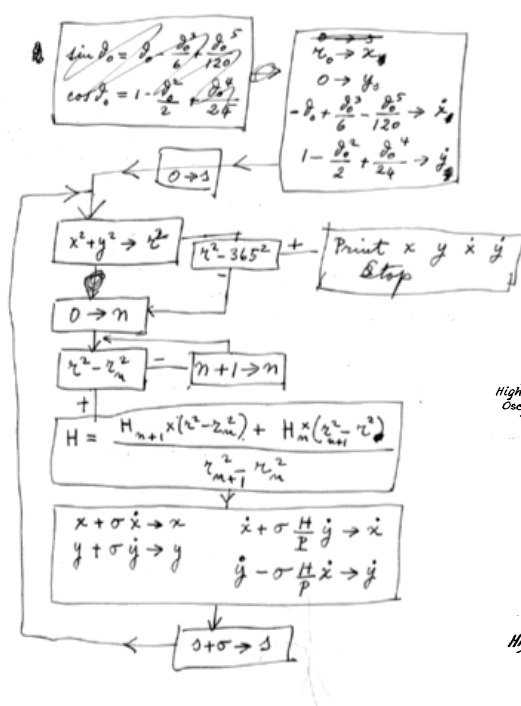 sin ϑ₀ = ϑ₀ - ϑ₀³/6 + ϑ₀⁵/120
cos ϑ₀ = 1 - ϑ₀²/2 + ϑ₀⁴/24
0 → s
r₀ → x
0 → y₀
-ϑ₀ + ϑ₀³/6 - ϑ₀⁵/120 → ẋ
1 - ϑ₀²/2 + ϑ₀⁴/24 → ẏ
0 → s
x² + y² → r²
r² - 365²
+
Print x y ẋ ẏ
Stop
-
0 → n
r² - rₙ²
-
n + 1 → n
+
H = (Hₙ₊₁ × (r² - rₙ²) + Hₙ × (rₙ₊₁² - r²)) / (rₙ₊₁² - rₙ²)
x + σ ẋ → x
ẋ + σ H/P ẏ → ẋ
y + σ ẏ → y
ẏ - σ H/P ẋ → ẏ
s + σ → s
High
Osc